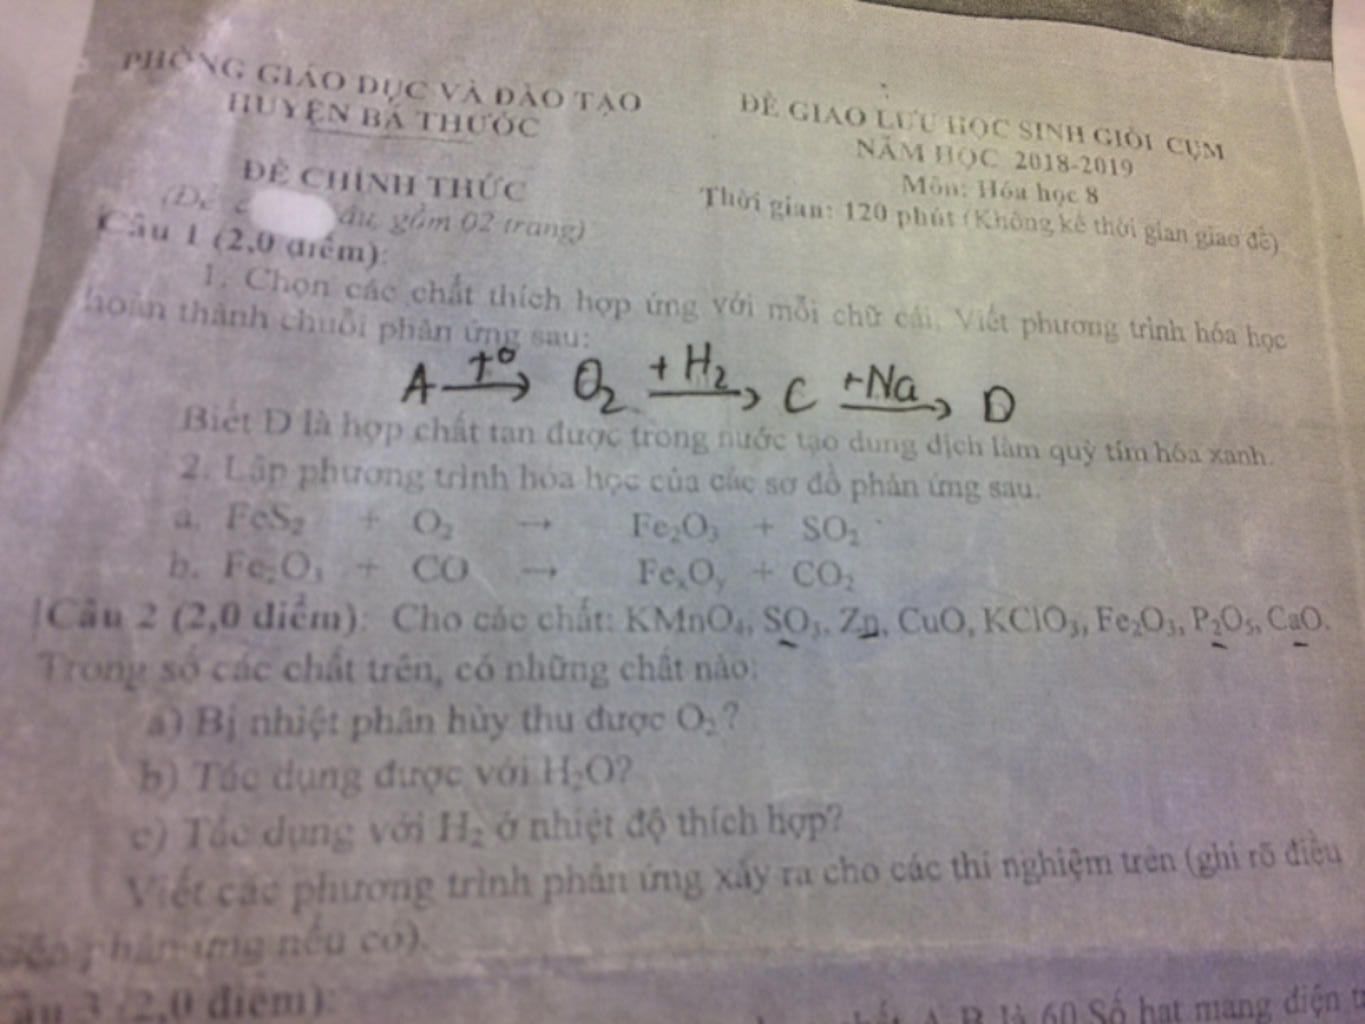 PHÒNG GIÁO DỤC VÀ ĐÀO TẠO
HUYỆN BÁ THƯỚC
ĐỀ CHÍNH THỨC
(Đề gồm 02 trang)
ĐỀ GIAO LƯU HỌC SINH GIỎI CỤM
NĂM HỌC 2018-2019
Môn: Hóa học 8
Thời gian: 120 phút (Không kể thời gian giao đề)
Câu 1 (2,0 điểm):
1. Chọn các chất thích hợp ứng với mỗi chữ cái. Viết phương trình hóa học
hoàn thành chuỗi phản ứng sau:
A —t°→ O₂ —+H₂→ C —+Na→ D
Biết D là hợp chất tan được trong nước tạo dung dịch làm quỳ tím hóa xanh.
2. Lập phương trình hóa học của các sơ đồ phản ứng sau.
a. FeS₂ + O₂ → Fe₂O₃ + SO₂
b. Fe₂O₃ + CO → FeₓOᵧ + CO₂
Câu 2 (2,0 điểm): Cho các chất: KMnO₄, SO₃, Zn, CuO, KClO₃, Fe₂O₃, P₂O₅, CaO.
Trong số các chất trên, có những chất nào:
a) Bị nhiệt phân hủy thu được O₂?
b) Tác dụng được với H₂O?
c) Tác dụng với H₂ ở nhiệt độ thích hợp?
Viết các phương trình phản ứng xảy ra cho các thí nghiệm trên (ghi rõ điều
phản ứng nếu có).
3 (2,0 điểm):
A, B là 60. Số hạt mang điện